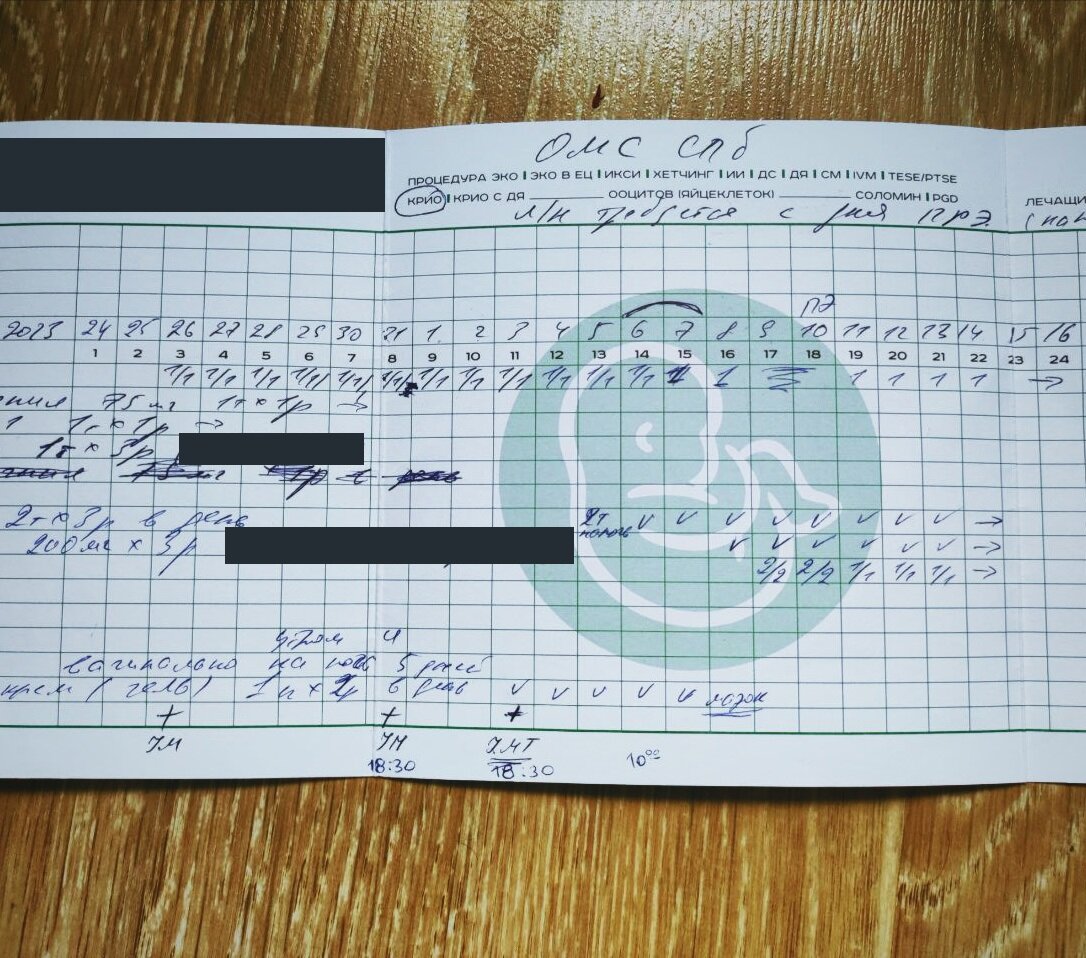 ОМС СПб
ПРОЦЕДУРА ЭКО | ЭКО В ЕЦ | ИКСИ | ХЕТЧИНГ | ИИ | ДС | ДЯ | СМ | IVM | TESE/PTSE
КРИО | КРИО С ДЯ ________ ООЦИТОВ (ЯЙЦЕКЛЕТОК) ________ СОЛОМИН | PGD
ЛЕЧАЩИ
л/н требуется с дня
ПЭ
2023 24 25 26 27 28 29 30 31 1 2 3 4 5 6 7 8 9 10 11 12 13 14 15 16
1 2 3 4 5 6 7 8 9 10 11 12 13 14 15 16 17 18 19 20 21 22 23 24
1/1 1/1 1/1 1/1 1/1 1/1 1/1 1/1 1/1 1/1 1/1 1 1 1 1 1 →
75 мг 1т × 1р →
1т × 1р →
1т × 3р
2т × 3р в день 2т v v v v v v v v →
200 мг × 3р v v v v v v →
2/2 2/2 1/1 1/1 1/1 →
утром и
вагинально на ночь 5 дней
крем (гель) 1п × 2р в день v v v v v мазок
+ + +
УМ УМ
18:30 18:30 10⁰⁰